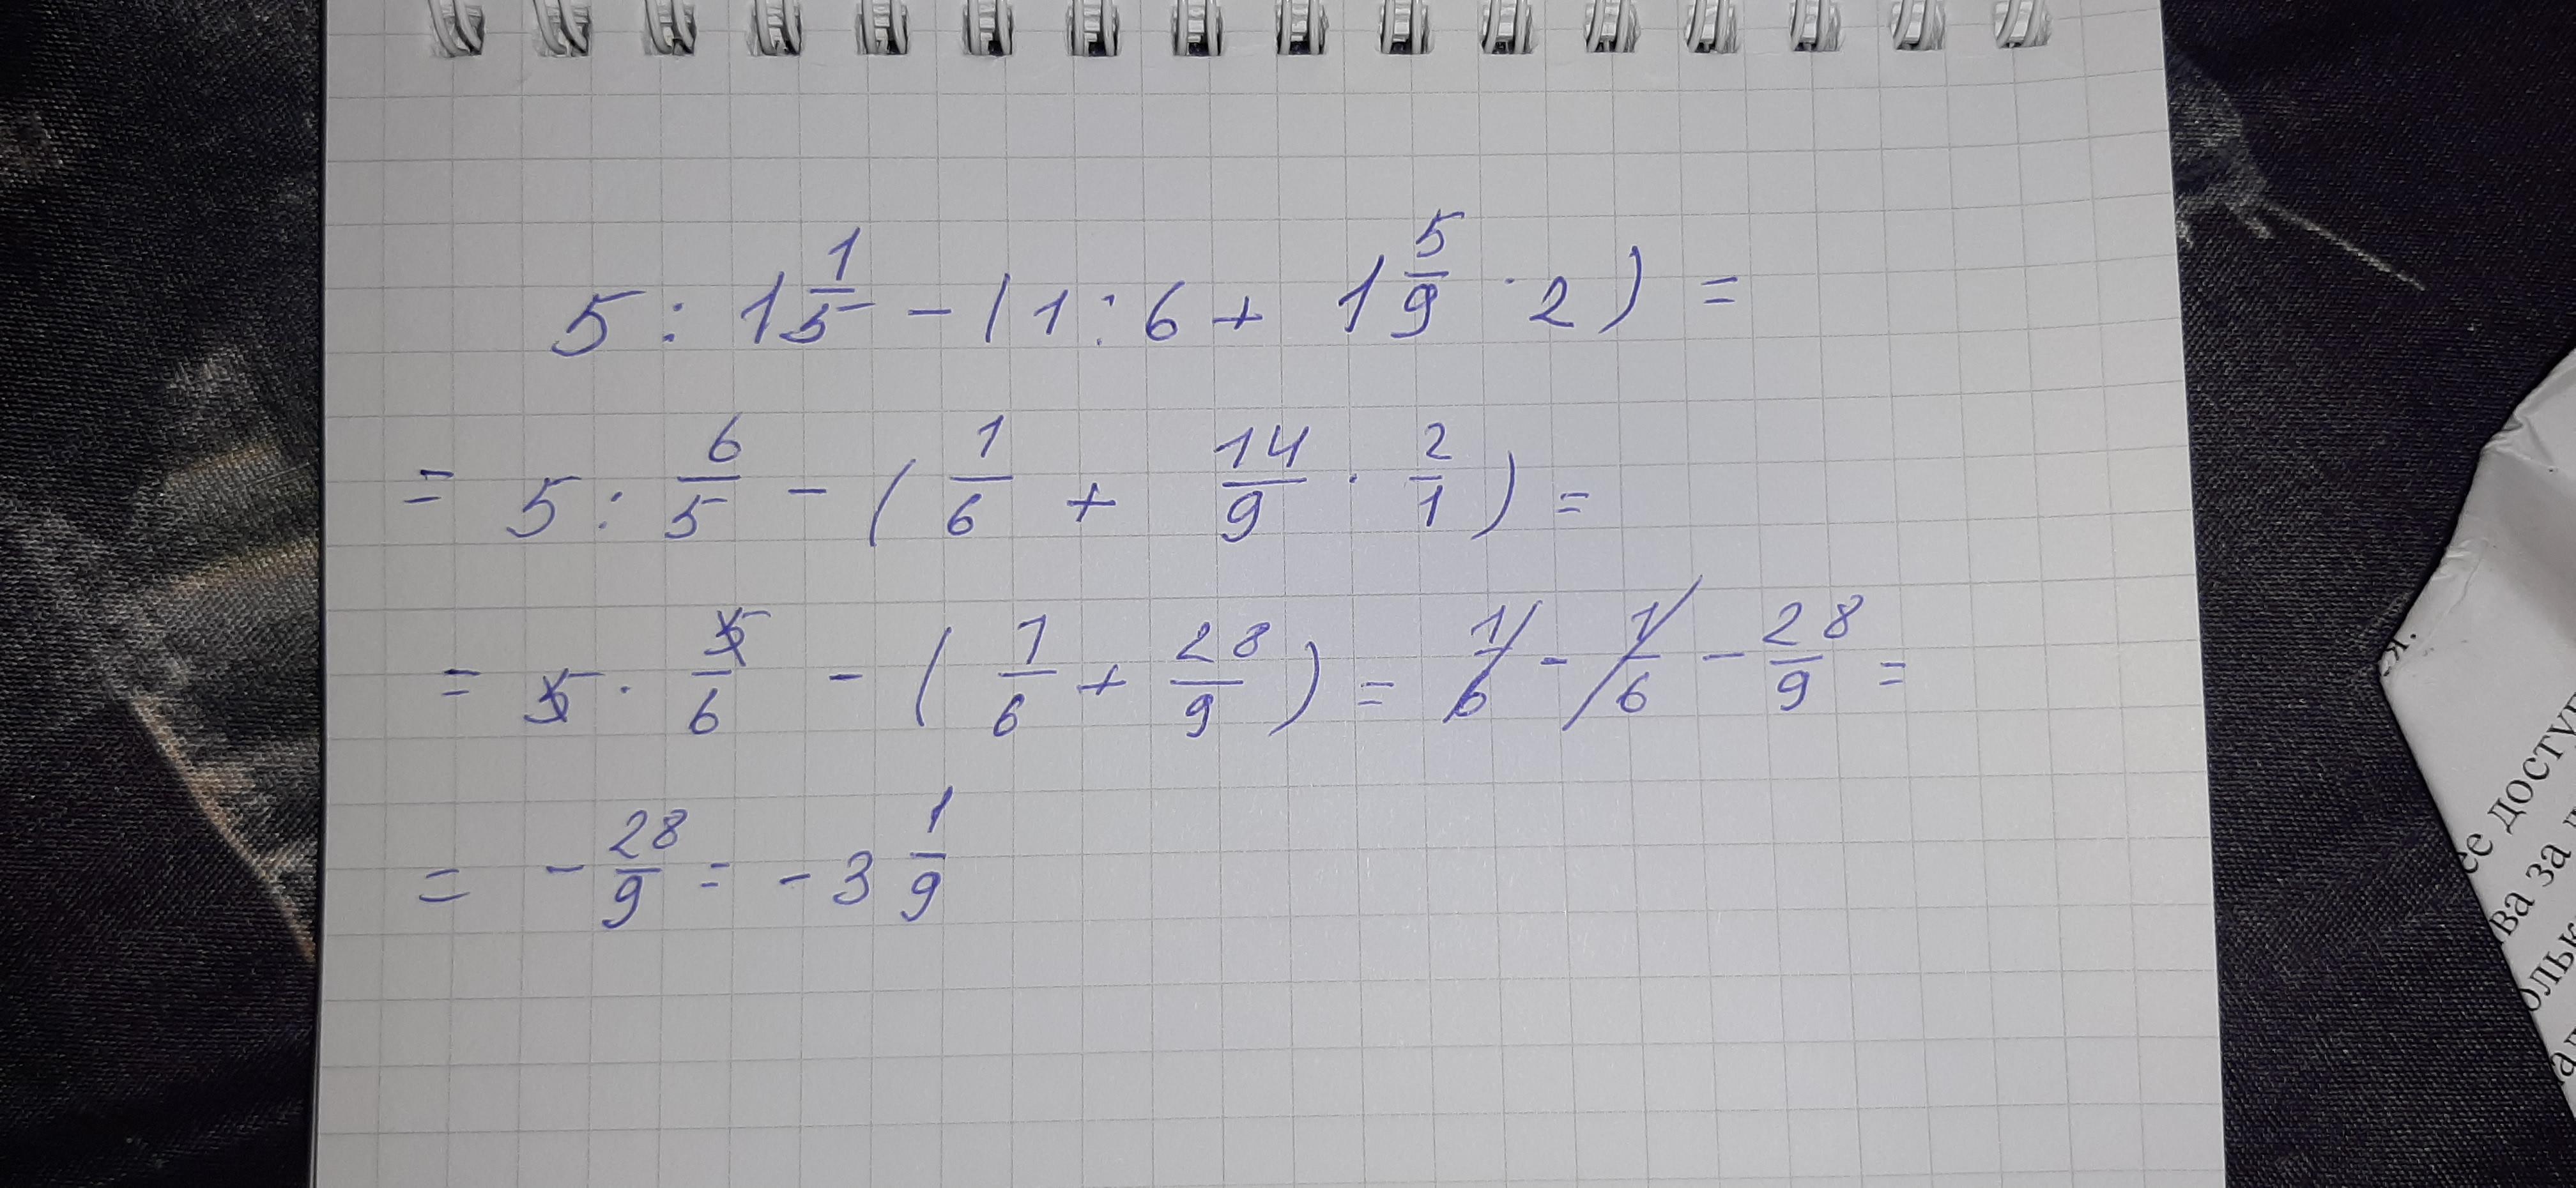 5 : 1 1/5 - (1 : 6 + 1 5/9 · 2) =
= 5 : 6/5 - (1/6 + 14/9 · 2/1) =
= 5 · 5/6 - (1/6 + 28/9) = 1/6 - 1/6 - 28/9 =
= - 28/9 = - 3 1/9
я.
доступ
ва за